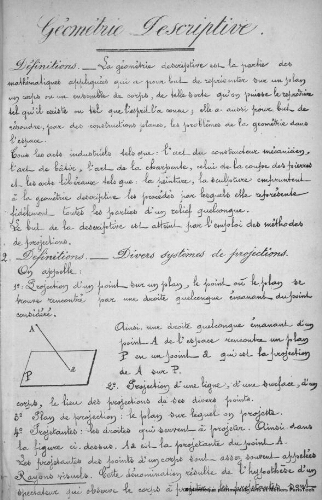 Géométrie Descriptive.
Définitions. — La géométrie descriptive est la partie des
mathématiques appliquées qui a pour but de représenter sur un plan
un corps ou un ensemble de corps, de telle sorte qu'on puisse le reproduire
tel qu'il existe ou tel que l'esprit l'a conçu ; elle a aussi pour but de
résoudre, par des constructions planes, les problèmes de la géométrie dans
l'espace.
Tous les arts industriels tels que : l'art du constructeur mécanicien,
l'art de bâtir, l'art de la charpente, celui de la coupe des pierres
et les arts libéraux tels que : la peinture, la sculpture empruntent
à la géométrie descriptive les procédés par lesquels elle représente
fidèlement toutes les parties d'un relief quelconque.
Le but de la descriptive est atteint par l'emploi des méthodes
de projections.
2. Définitions. — Divers systèmes de projections.
On appelle :
1º: Projection d'un point sur un plan, le point où le plan se
trouve rencontré par une droite quelconque émanant du point
considéré.
A
P
a
Ainsi une droite quelconque émanant d'un
point A de l'espace rencontre un plan
P en un point a qui est la projection
de A sur P.
2º. Projection d'une ligne, d'une surface, d'un
corps, le lieu des projections de ses divers points.
3º Plan de projection : le plan sur lequel on projette.
4º Projetantes : les droites qui servent à projeter. Ainsi dans
la figure ci-dessus. Aa est la projetante du point A.
Les projetantes des points d'un corps sont assez souvent appelées
Rayons visuels. Cette dénomination résulte de l'hypothèse d'un
spectateur qui observe le corps à